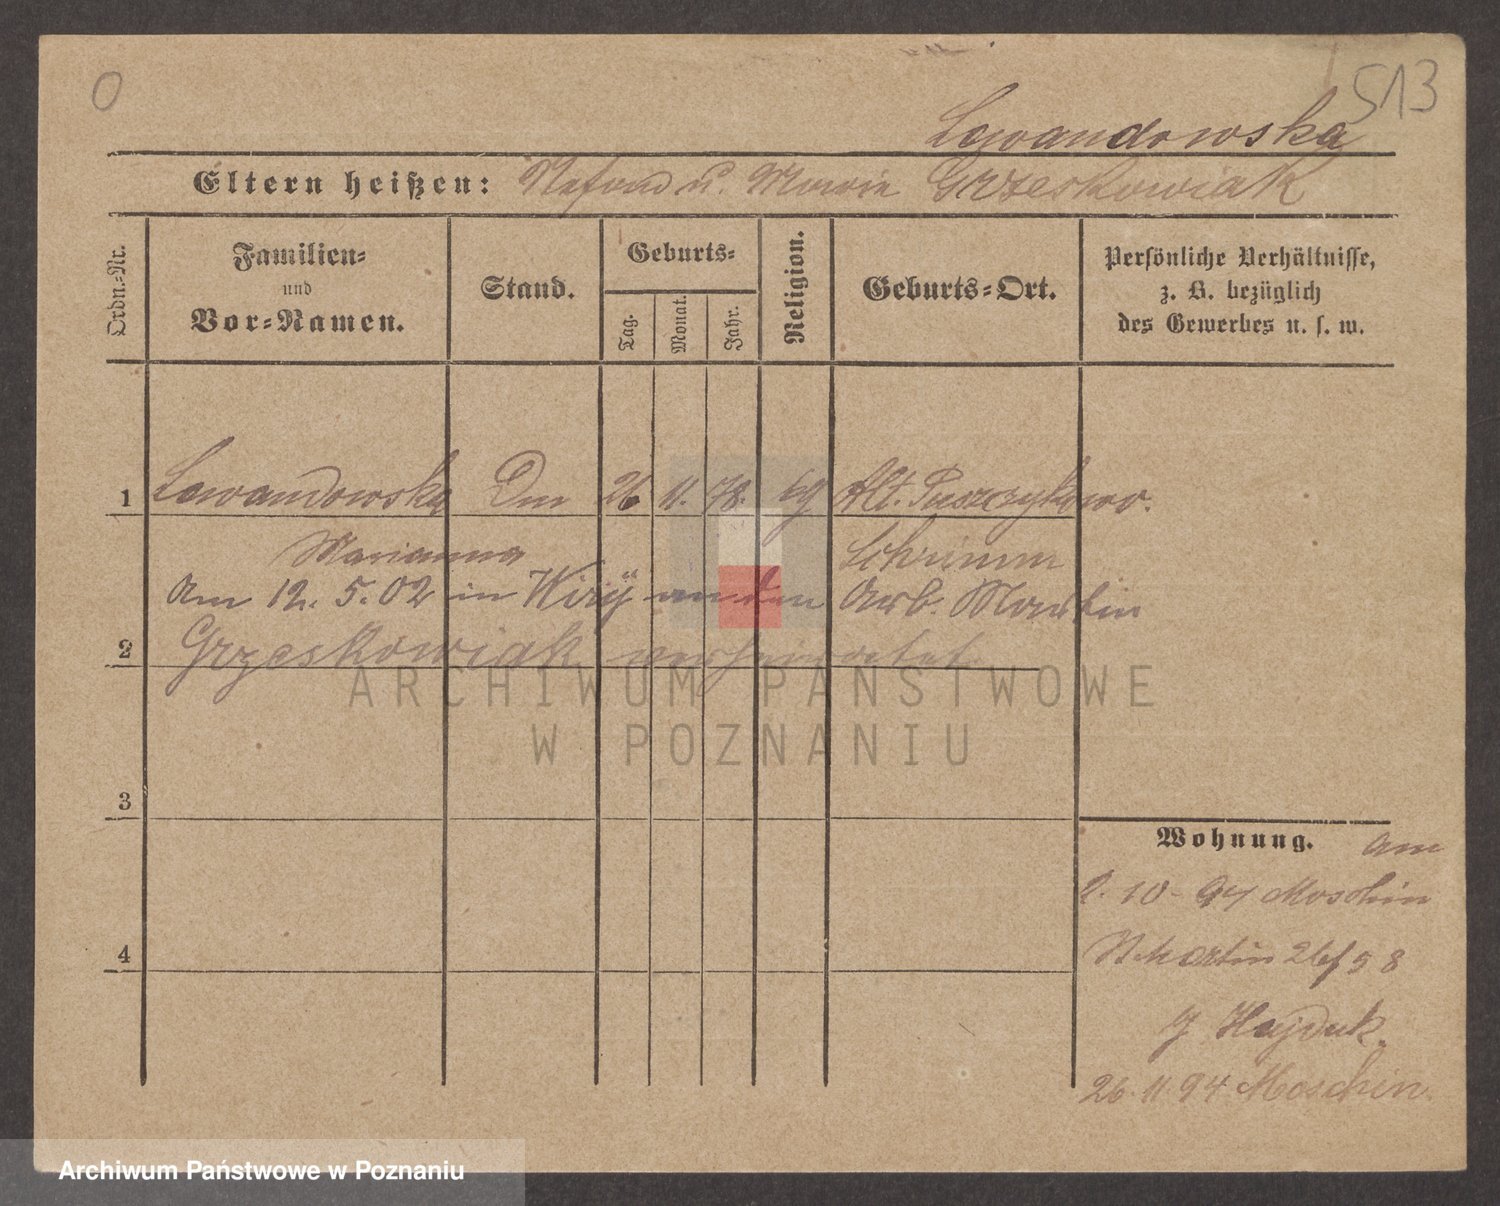 O
513
Lewandowska
Eltern heißen: u. Marie Grzeskowiak
Ordn.-Nr.
Familien-
und
Vor-Namen.
Stand.
Geburts-
Tag.
Monat.
Jahr.
Religion.
Geburts-Ort.
Persönliche Verhältnisse,
z. B. bezüglich
des Gewerbes u. s. w.
1 Lewandowska 26 11. 78. Alt. Puszczykowo.
Marianna Schrimm
Am 12. 5. 02 in Wiry an den Arb. Martin
2 Grzeskowiak verheiratet.
3
4
Wohnung. am
2. 10 - 94 Moschin
St Martin 58
Hajduk.
26. 11. 94 Moschin.
ARCHIWUM PAŃSTWOWE
W POZNANIU
Archiwum Państwowe w Poznaniu